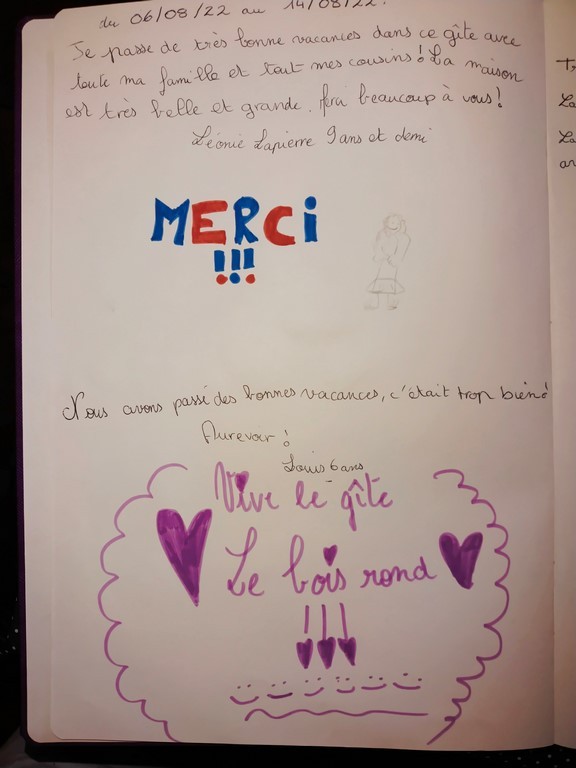 du 06/08/22 au 14/08/22.
Je passe de très bonne vacances dans ce gîte avec
toute ma famille et tout mes cousins! La maison
est très belle et grande. beaucoup à vous!
Léonie Lapierre 9 ans et demi
MERCi
!!!
Nous avons passé des bonnes vacances, c'était trop bien!
Aurevoir!
Louis 6 ans
Vive le gîte
Le bois rond
!!!